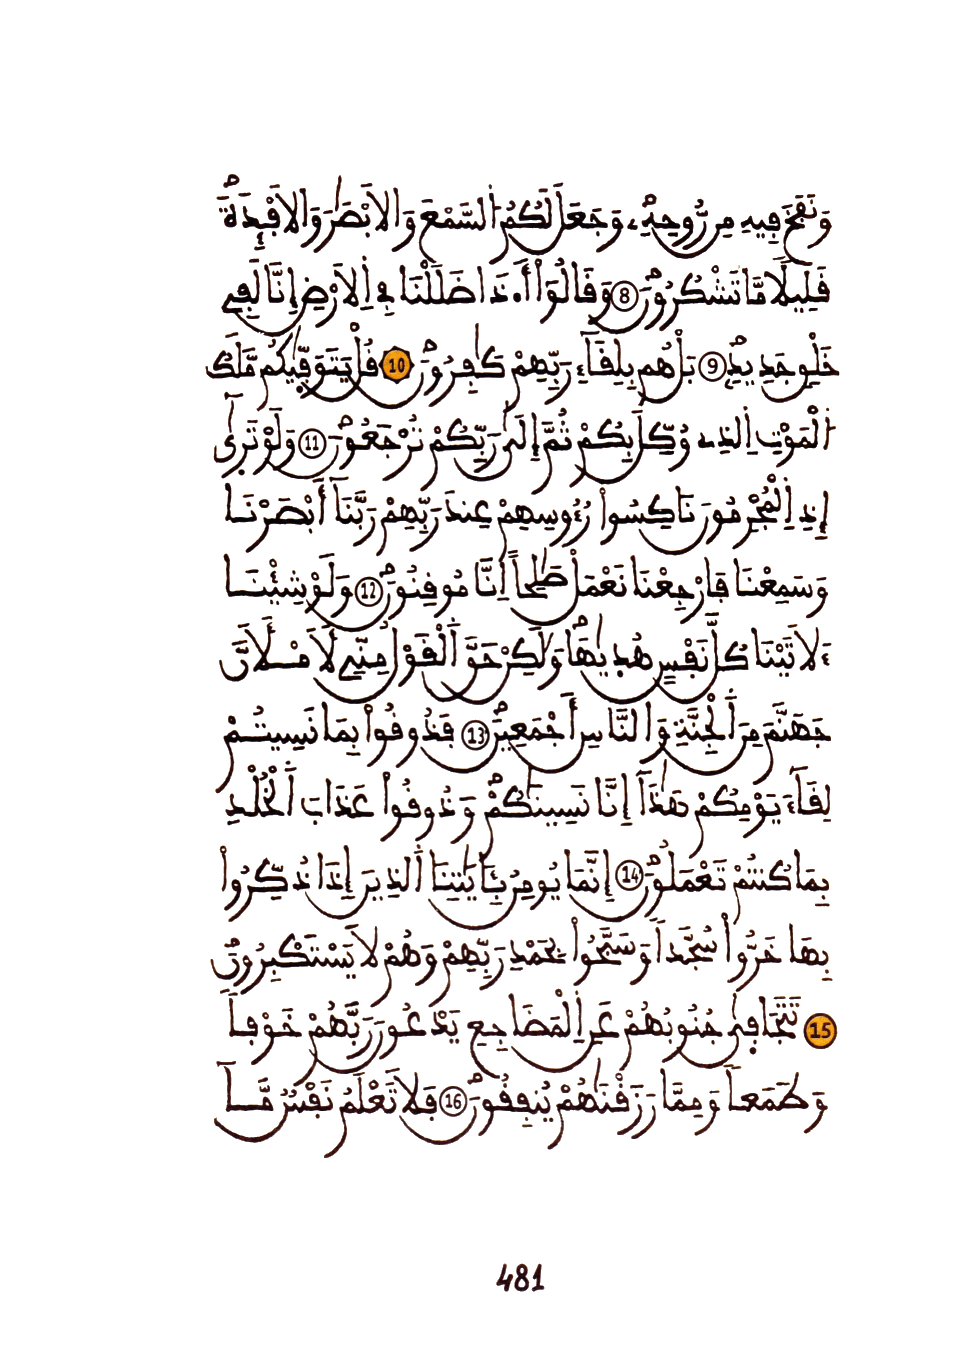 وَنَفَخَ فِيهِ مِن رُّوحِهِۦ وَجَعَلَ لَكُمُ اُ۬لسَّمْعَ وَالَابْصَٰرَ وَالَافْـِٕدَةَۖ
قَلِيلاٗ مَّا تَشْكُرُونَۖ 8 وَقَالُوٓاْ أَ.ذَا ضَلَلْنَا فِے اِ۬لَارْضِ إِنَّا لَفِے
خَلْقٖ جَدِيدِۢۖ 9 بَلْ هُم بِلِقَآءِ رَبِّهِمْ كَٰفِرُونَۖ 10 قُلْ يَتَوَفّ۪يٰكُم مَّلَكُ
اُ۬لْمَوْتِ اِ۬لذِے وُكِّلَ بِكُمْ ثُمَّ إِلَىٰ رَبِّكُمْ تُرْجَعُونَۖ 11 وَلَوْ تَر۪يٰٓ
إِذِ اِ۬لْمُجْرِمُونَ نَاكِسُواْ رُءُوسِهِمْ عِندَ رَبِّهِمْ رَبَّنَآ أَبْصَرْنَا
وَسَمِعْنَا فَارْجِعْنَا نَعْمَلْ صَٰلِحاً اِنَّا مُوقِنُونَۖ 12 وَلَوْ شِئْنَا
ءَلَاتَيْنَا كُلَّ نَفْسٍ هُد۪يٰهَاۖ وَلَٰكِنْ حَقَّ اَ۬لْقَوْلُ مِنِّے لَأَمْلَأَنَّ
جَهَنَّمَ مِنَ اَ۬لْجِنَّةِ وَالنَّاسِ أَجْمَعِينَۖ 13 فَذُوقُواْ بِمَا نَسِيتُمْ
لِقَآءَ يَوْمِكُمْ هَٰذَآ إِنَّا نَسِينَٰكُمْۖ وَذُوقُواْ عَذَابَ اَ۬لْخُلْدِ
بِمَا كُنتُمْ تَعْمَلُونَۖ 14 إِنَّمَا يُومِنُ بِـَٔايَٰتِنَا اَ۬لذِينَ إِذَا ذُكِّرُواْ
بِهَا خَرُّواْ سُجَّداٗ وَسَبَّحُواْ بِحَمْدِ رَبِّهِمْ وَهُمْ لَا يَسْتَكْبِرُونَۖ
15 تَتَجَاف۪يٰ جُنُوبُهُمْ عَنِ اِ۬لْمَضَاجِعِ يَدْعُونَ رَبَّهُمْ خَوْفاٗ
وَطَمَعاٗ وَمِمَّا رَزَقْنَٰهُمْ يُنفِقُونَۖ 16 فَلَا تَعْلَمُ نَفْسٌ مَّآ
481